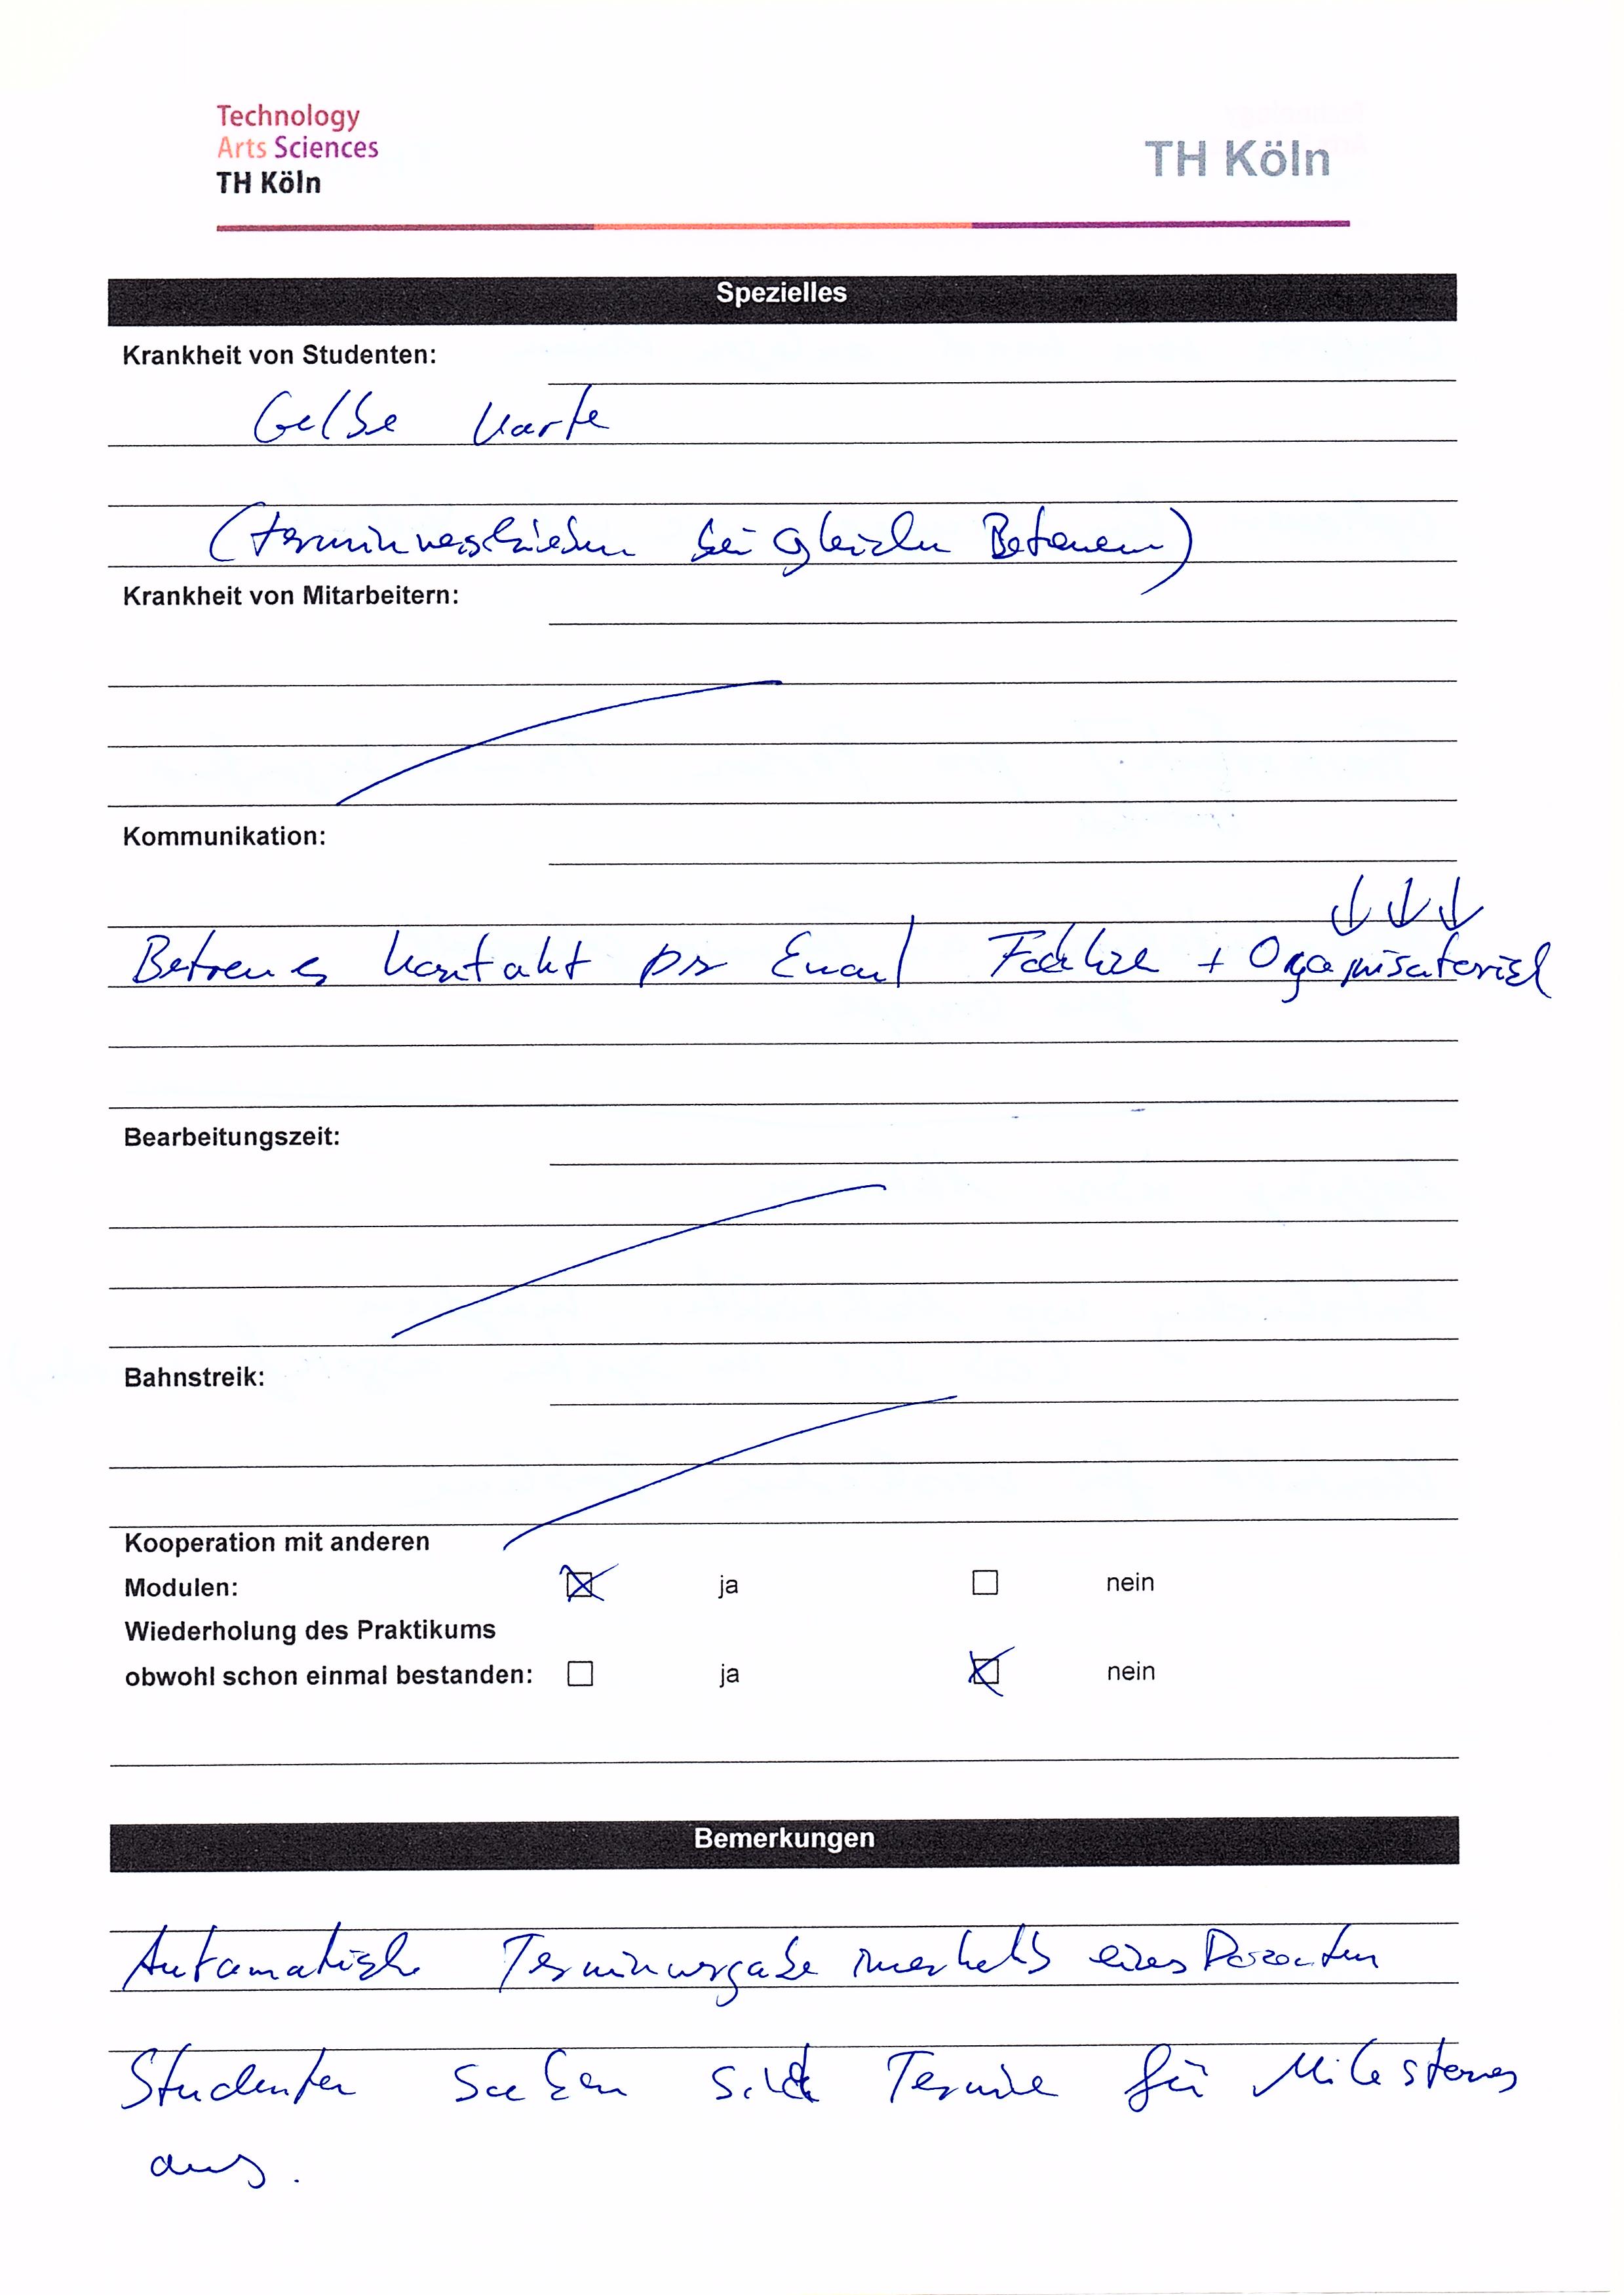 Technology
Arts Sciences
TH Köln
TH Köln
Spezielles
Krankheit von Studenten:
Gelbe Karte
(Terminverschieben bei gleichen Betreuern)
Krankheit von Mitarbeitern:
Kommunikation:
Betreuer Kontakt per Email Fachlich + Organisatorisch
Bearbeitungszeit:
Bahnstreik:
Kooperation mit anderen
Modulen: ja nein
Wiederholung des Praktikums
obwohl schon einmal bestanden: ja nein
Bemerkungen
Automatische Terminvergabe innerhalb eines Dozenten
Studenten suchen sich Termine für Milestones
aus.